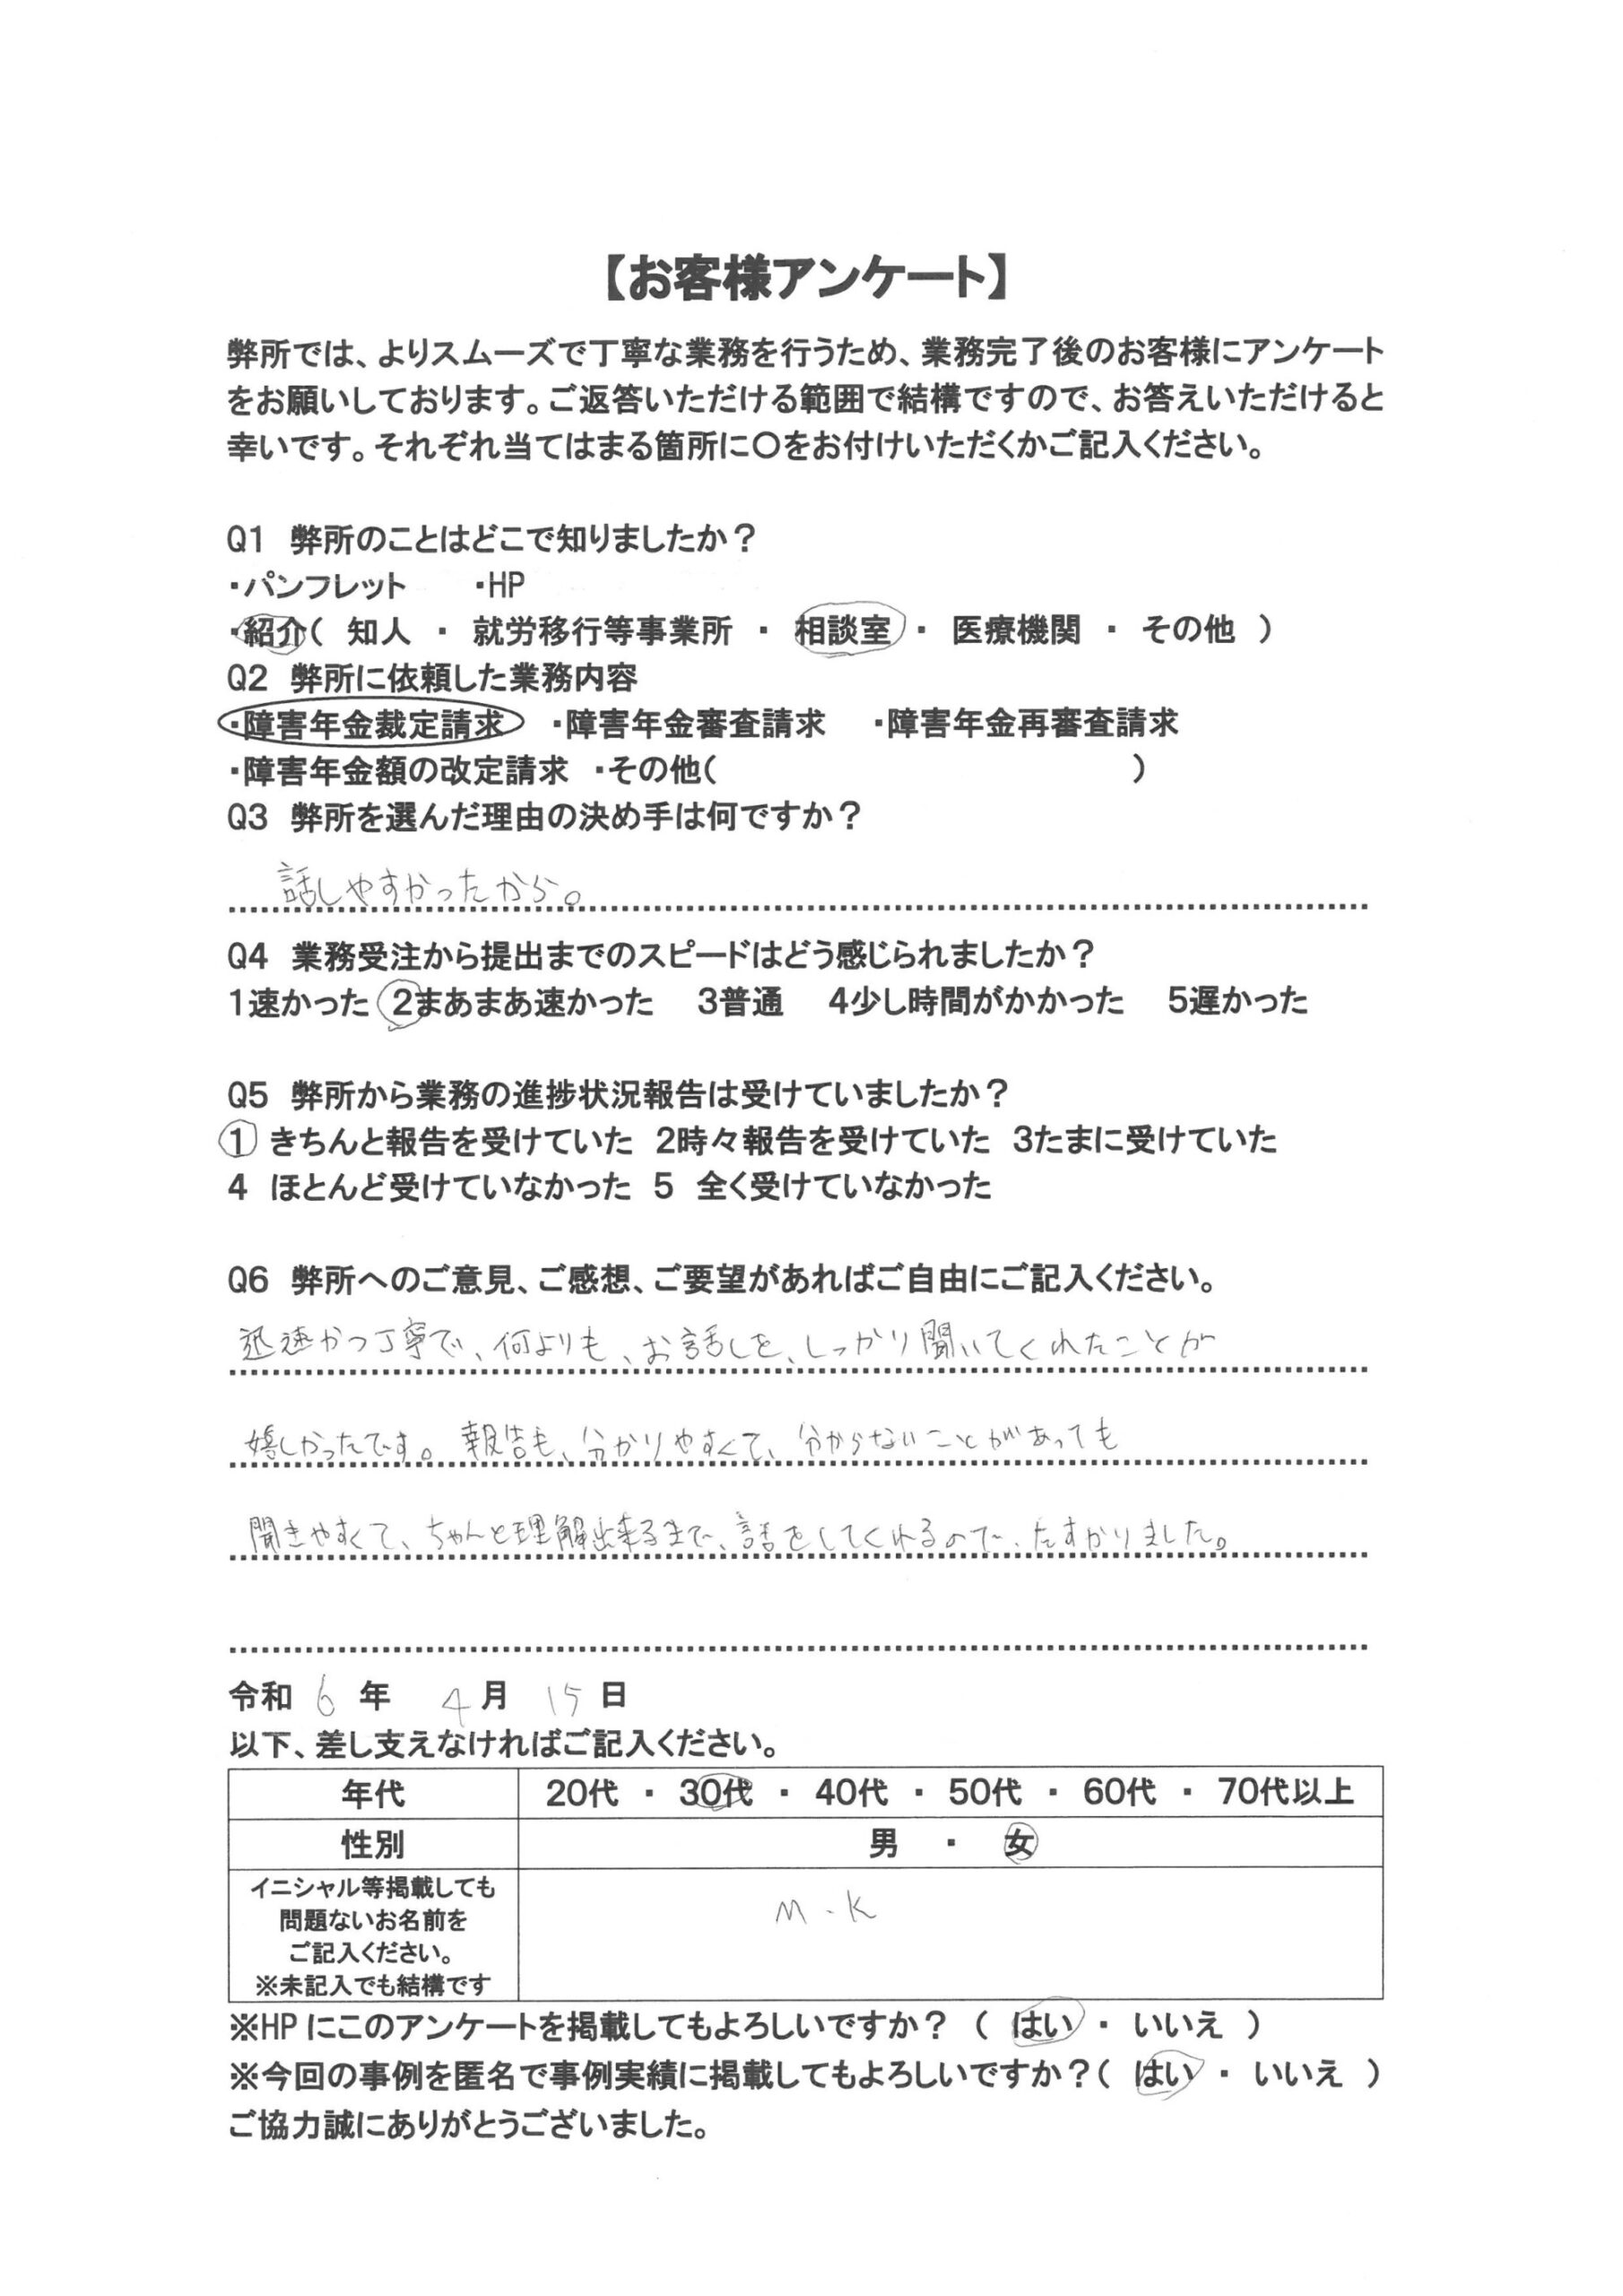 【お客様アンケート】
弊所では、よりスムーズで丁寧な業務を行うため、業務完了後のお客様にアンケート
をお願いしております。ご返答いただける範囲で結構ですので、お答えいただけると
幸いです。それぞれ当てはまる箇所に〇をお付けいただくかご記入ください。
Q1 弊所のことはどこで知りましたか？
・パンフレット ・HP
・紹介（ 知人 ・ 就労移行等事業所 ・ 相談室 ・ 医療機関 ・ その他 ）
Q2 弊所に依頼した業務内容
・障害年金裁定請求 ・障害年金審査請求 ・障害年金再審査請求
・障害年金額の改定請求 ・その他（ ）
Q3 弊所を選んだ理由の決め手は何ですか？
話しやすかったから。
Q4 業務受注から提出までのスピードはどう感じられましたか？
1速かった 2まあまあ速かった 3普通 4少し時間がかかった 5遅かった
Q5 弊所から業務の進捗状況報告は受けていましたか？
1 きちんと報告を受けていた 2時々報告を受けていた 3たまに受けていた
4 ほとんど受けていなかった 5 全く受けていなかった
Q6 弊所へのご意見、ご感想、ご要望があればご自由にご記入ください。
迅速かつ丁寧で、何よりも、お話しを、しっかり聞いてくれたことが
嬉しかったです。報告も、分かりやすくて、分からないことがあっても
聞きやすくて、ちゃんと理解出来るまで、話をしてくれるので、たすかりました。
令和 6 年 4 月 15 日
以下、差し支えなければご記入ください。
年代 20代 ・ 30代 ・ 40代 ・ 50代 ・ 60代 ・ 70代以上
性別 男 ・ 女
イニシャル等掲載しても
問題ないお名前を
ご記入ください。
※未記入でも結構です
M.K
※HPにこのアンケートを掲載してもよろしいですか？（ はい ・ いいえ ）
※今回の事例を匿名で事例実績に掲載してもよろしいですか？（ はい ・ いいえ ）
ご協力誠にありがとうございました。